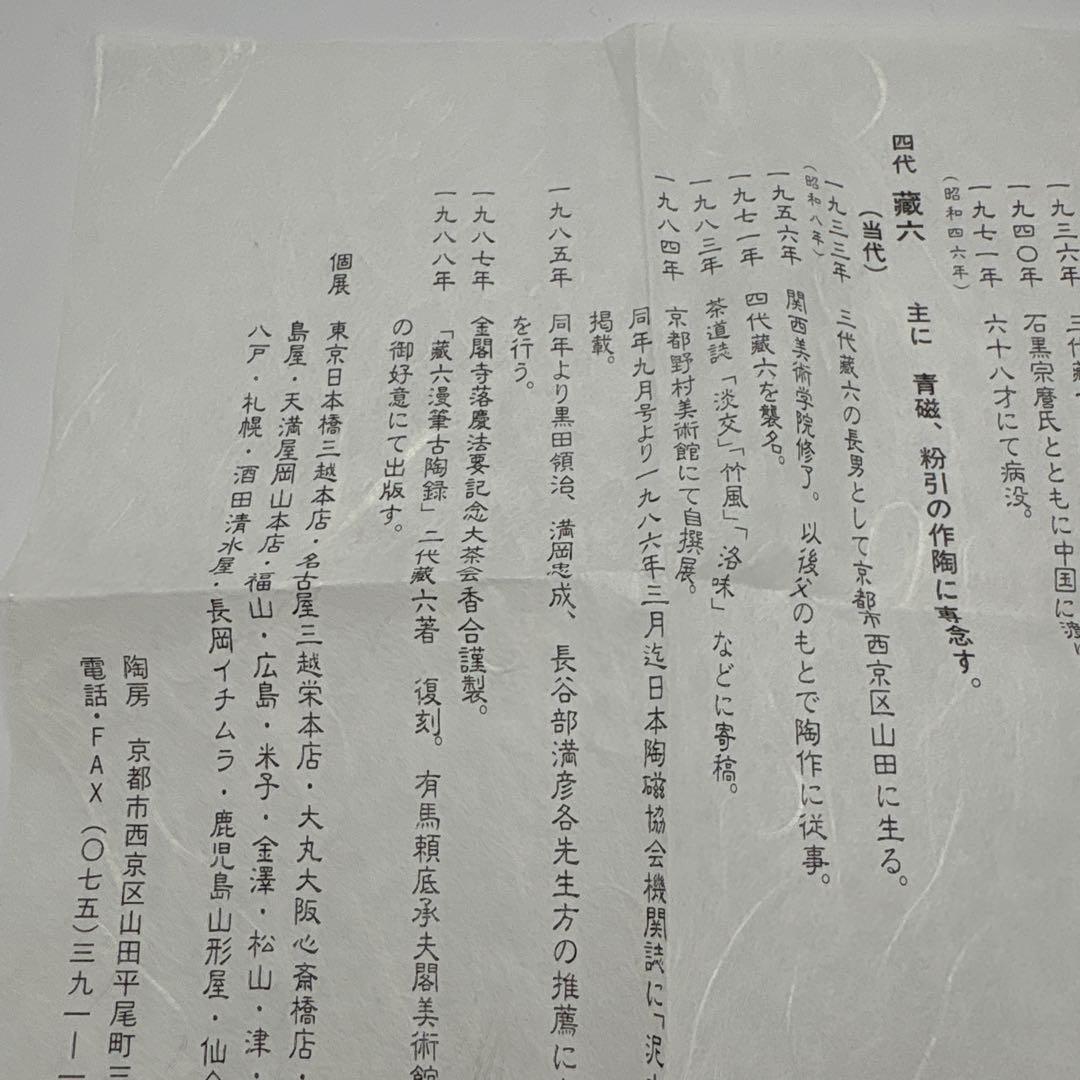 一九三六年 三代藏
一九四〇年 石黒宗麿氏とともに中国に渡
一九七一年 六十八才にて病没。
（昭和四六年）
四代 藏六 主に 青磁、粉引の作陶に専念す。
（当代）
一九三三年 三代藏六の長男として京都市西京区山田に生る。
（昭和八年）
一九五六年 関西美術学院修了。以後父のもとで陶作に従事。
一九七一年 四代藏六を襲名。
一九八三年 茶道誌「淡交」「竹風」「洛味」などに寄稿。
一九八四年 京都野村美術館にて自撰展。
同年九月号より一九八六年三月迄日本陶磁協会機関誌に「泥
掲載。
一九八五年 同年より黒田領治、満岡忠成、長谷部満彦各先生方の推薦に
を行う。
一九八七年 金閣寺落慶法要記念大茶会香合謹製。
一九八八年 「藏六漫筆古陶録」二代藏六著 復刻。有馬頼底承夫閣美術館
の御好意にて出版す。
個展 東京日本橋三越本店・名古屋三越栄本店・大丸大阪心斎橋店・
島屋・天満屋岡山本店・福山・広島・米子・金澤・松山・津・
八戸・札幌・酒田清水屋・長岡イチムラ・鹿児島山形屋・仙
陶房 京都市西京区山田平尾町三
電話・FAX（〇七五）三九一―